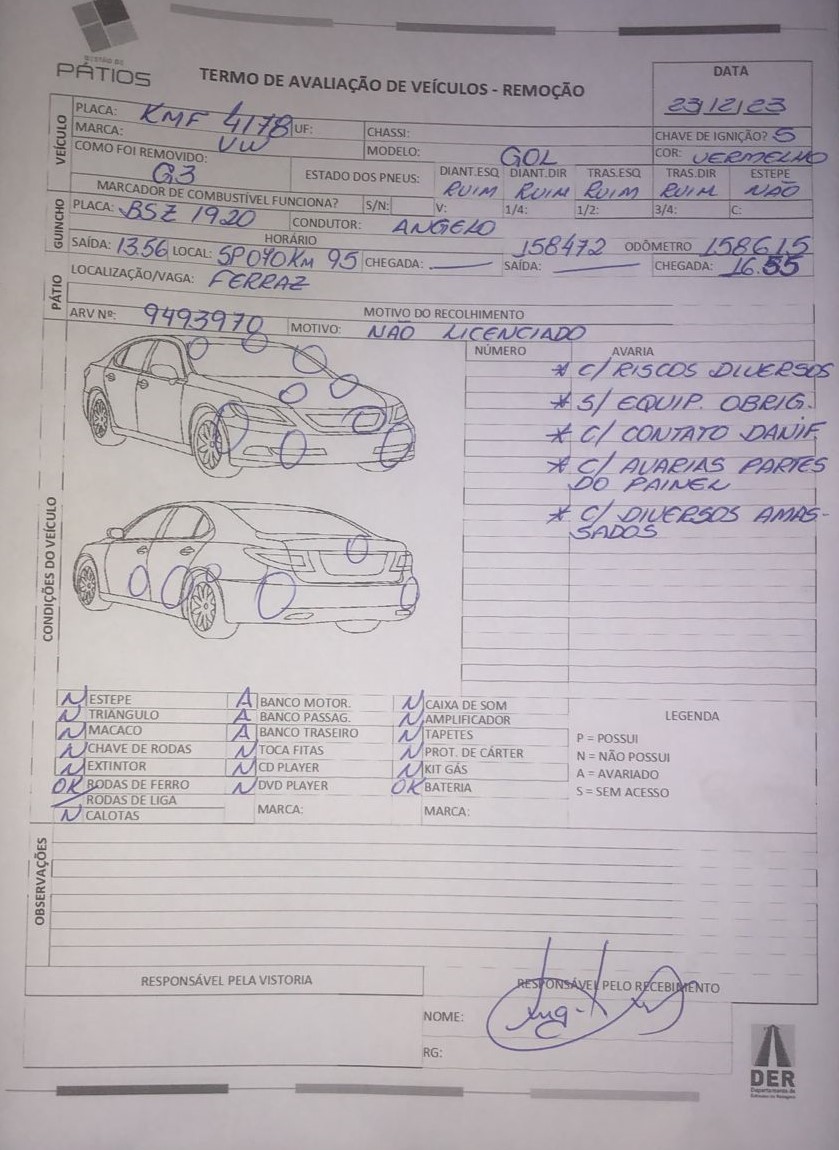 GESTÃO DE
PÁTIOS
TERMO DE AVALIAÇÃO DE VEÍCULOS - REMOÇÃO
DATA
23/12/23
VEÍCULO
PLACA: KMF 4178 UF: CHASSI: CHAVE DE IGNIÇÃO? S
MARCA: VW MODELO: GOL COR: VERMELHO
COMO FOI REMOVIDO: G3 ESTADO DOS PNEUS: DIANT.ESQ DIANT.DIR TRAS.ESQ TRAS.DIR ESTEPE
RUIM RUIM RUIM RUIM NÃO
MARCADOR DE COMBUSTÍVEL FUNCIONA? S/N: V: 1/4: 1/2: 3/4: C:
GUINCHO
PLACA: BSZ 1920 CONDUTOR: ANGELO
HORÁRIO 158472 ODÔMETRO 158615
SAÍDA: 13.56 LOCAL: SP 070 KM 95 CHEGADA: SAÍDA: CHEGADA: 16.55
PÁTIO
LOCALIZAÇÃO/VAGA: FERRAZ
MOTIVO DO RECOLHIMENTO
ARV Nº: 9493970 MOTIVO: NÃO LICENCIADO
CONDIÇÕES DO VEÍCULO
NÚMERO AVARIA
* C/ RISCOS DIVERSOS
* S/ EQUIP. OBRIG.
* C/ CONTATO DANIF.
* C/ AVARIAS PARTES
DO PAINEL
* C/ DIVERSOS AMAS-
SADOS
N ESTEPE A BANCO MOTOR. N CAIXA DE SOM
N TRIÂNGULO A BANCO PASSAG. N AMPLIFICADOR
N MACACO A BANCO TRASEIRO N TAPETES
N CHAVE DE RODAS N TOCA FITAS N PROT. DE CÁRTER
N EXTINTOR N CD PLAYER N KIT GÁS
OK RODAS DE FERRO N DVD PLAYER OK BATERIA
RODAS DE LIGA MARCA: MARCA:
N CALOTAS
LEGENDA
P = POSSUI
N = NÃO POSSUI
A = AVARIADO
S = SEM ACESSO
OBSERVAÇÕES
RESPONSÁVEL PELA VISTORIA RESPONSÁVEL PELO RECEBIMENTO
NOME:
RG:
DER
Departamento de
Estradas de Rodagem